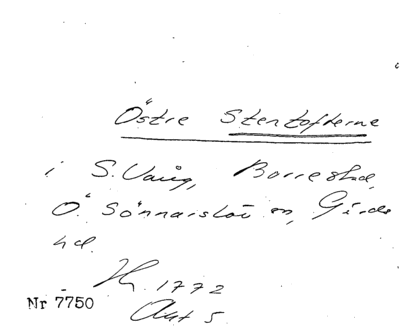 Östre Stentofterne
i S. Vång, Borrestad,
Ö. Sönnarslöv sn, Gärds
hd.
Hl. 1772
Akt 5.
Nr 7750